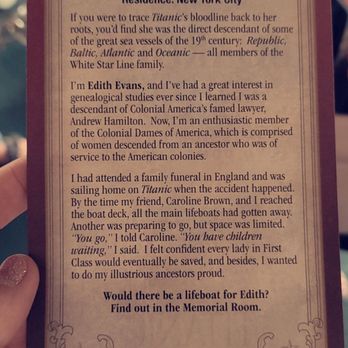 Residence: New York City
If you were to trace Titanic's bloodline back to her
roots, you'd find she was the direct descendant of some
of the great sea vessels of the 19th century: Republic,
Baltic, Atlantic and Oceanic — all members of the
White Star Line family.
I'm Edith Evans, and I've had a great interest in
genealogical studies ever since I learned I was a
descendant of Colonial America's famed lawyer,
Andrew Hamilton. Now, I'm an enthusiastic member
of the Colonial Dames of America, which is comprised
of women descended from an ancestor who was of
service to the American colonies.
I had attended a family funeral in England and was
sailing home on Titanic when the accident happened.
By the time my friend, Caroline Brown, and I reached
the boat deck, all the main lifeboats had gotten away.
Another was preparing to go, but space was limited.
"You go," I told Caroline. "You have children
waiting," I said. I felt confident every lady in First
Class would eventually be saved, and besides, I wanted
to do my illustrious ancestors proud.
Would there be a lifeboat for Edith?
Find out in the Memorial Room.